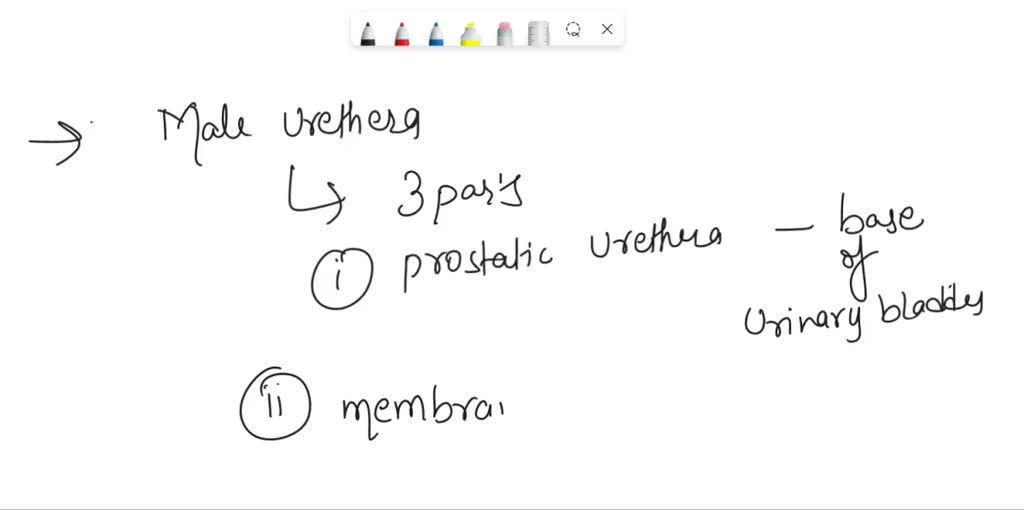 → Male urethera
↳ 3 par's
(i) prostatic urethera — base
of
Urinary bladdes
(ii) membrai